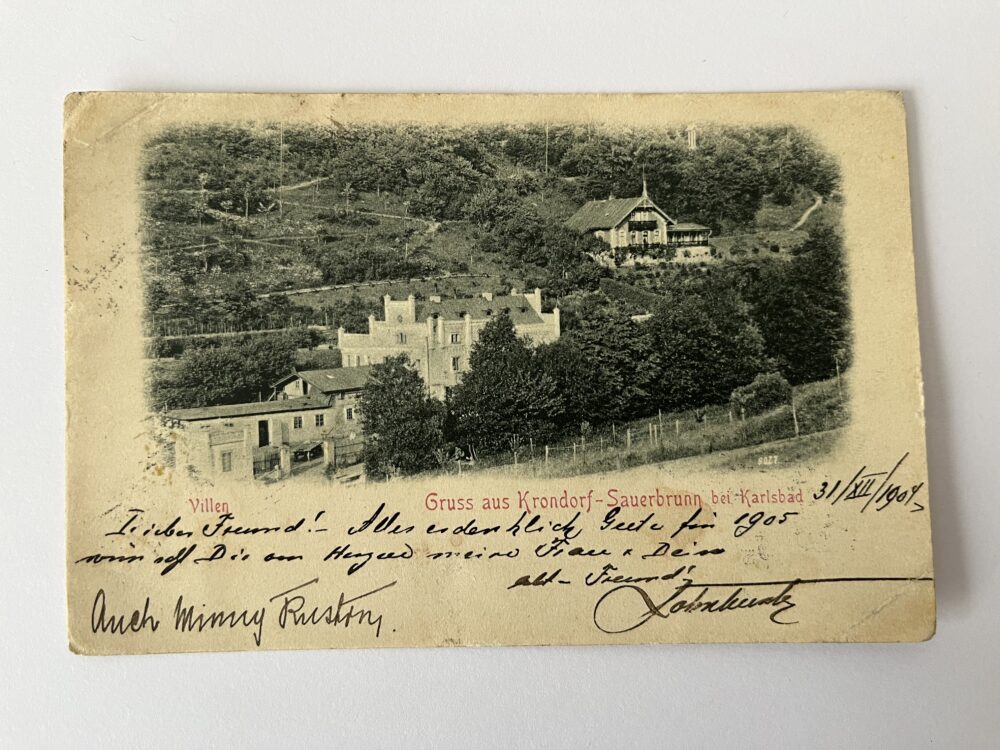 8077
Villen
Gruss aus Krondorf-Sauerbrunn bei Karlsbad 31/XII/1904
Lieber Freund! - Alles erdenklich Gute für 1905
wünscht Dir von Herzen meine Frau & Dein
alt- Freund!
Auch Minny